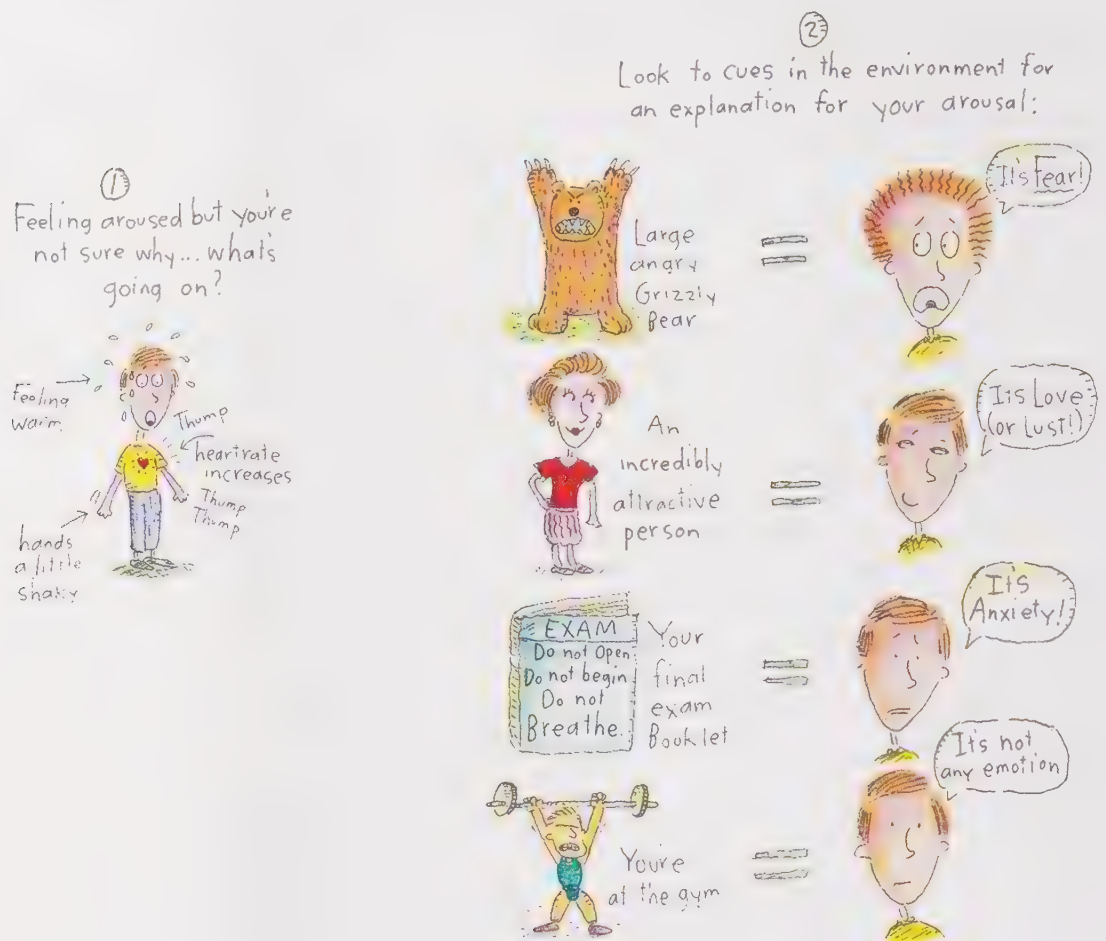 1
Feeling aroused but you're
not sure why... what's
going on?
Feeling
warm
Thump
heartrate
increases
Thump
Thump
hands
a little
shaky
2
Look to cues in the environment for
an explanation for your arousal:
Large
angry
Grizzly
Bear
=
It's Fear!
An
incredibly
attractive
person
=
It's Love
(or Lust!)
EXAM
Do not Open
Do not begin
Do not
Breathe.
Your
final
exam
Booklet
=
It's
Anxiety!
You're
at the gym
=
It's not
any emotion